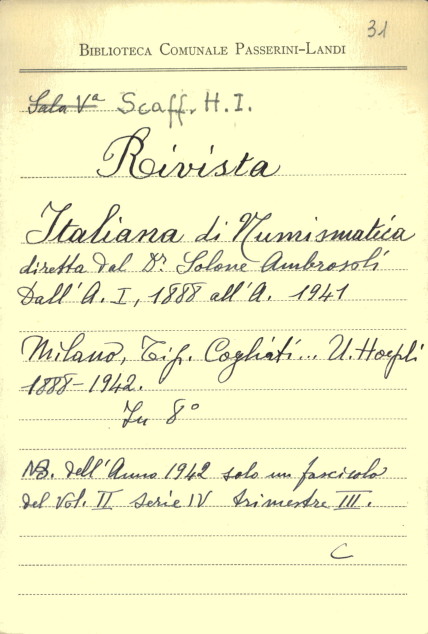 31
BIBLIOTECA COMUNALE PASSERINI-LANDI
Sala Vª Scaff. H. I.
Rivista
Italiana di Numismatica
diretta dal Dr. Solone Ambrosoli
Dall'A. I, 1888 all'A. 1941
Milano, Tip. Cogliati... U. Hoepli
1888-1942.
In 8°
NB. dell'Anno 1942 solo un fascicolo
del Vol. II serie IV trimestre III.
C